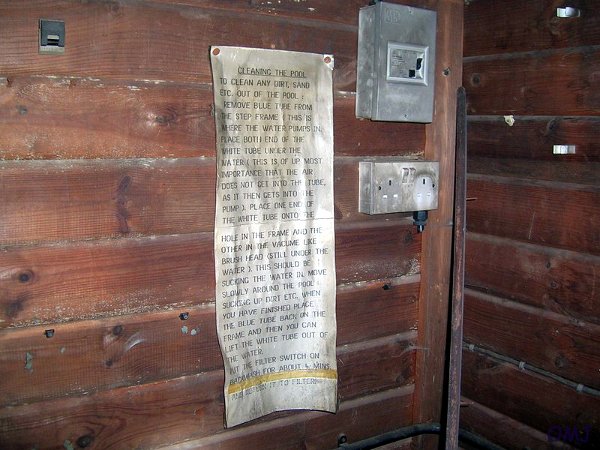 CLEANING THE POOL
TO CLEAN ANY DIRT, SAND
ETC. OUT OF THE POOL :
REMOVE BLUE TUBE FROM
THE STEP FRAME ( THIS IS
WHERE THE WATER PUMPS IN
PLACE BOTH END OF THE
WHITE TUBE UNDER THE
WATER ( THIS IS OF UP MOST
IMPORTANCE THAT THE AIR
DOES NOT GET INTO THE TUBE,
AS IT THEN GETS INTO THE
PUMP ). PLACE ONE END OF
THE WHITE TUBE ONTO THE
HOLE IN THE FRAME AND THE
OTHER IN THE VACUME LIKE
BRUSH HEAD (STILL UNDER THE
WATER ). THIS SHOULD BE
SUCKING THE WATER IN, MOVE
SLOWLY AROUND THE POOL
SUCKING UP DIRT ETC. WHEN
YOU HAVE FINISHED PLACE
THE BLUE TUBE BACK ON THE
FRAME AND THEN YOU CAN
LIFT THE WHITE TUBE OUT OF
THE WATER.
PUT THE FILTER SWITCH ON
BACKWASH FOR ABOUT MINS
IT TO FILTER